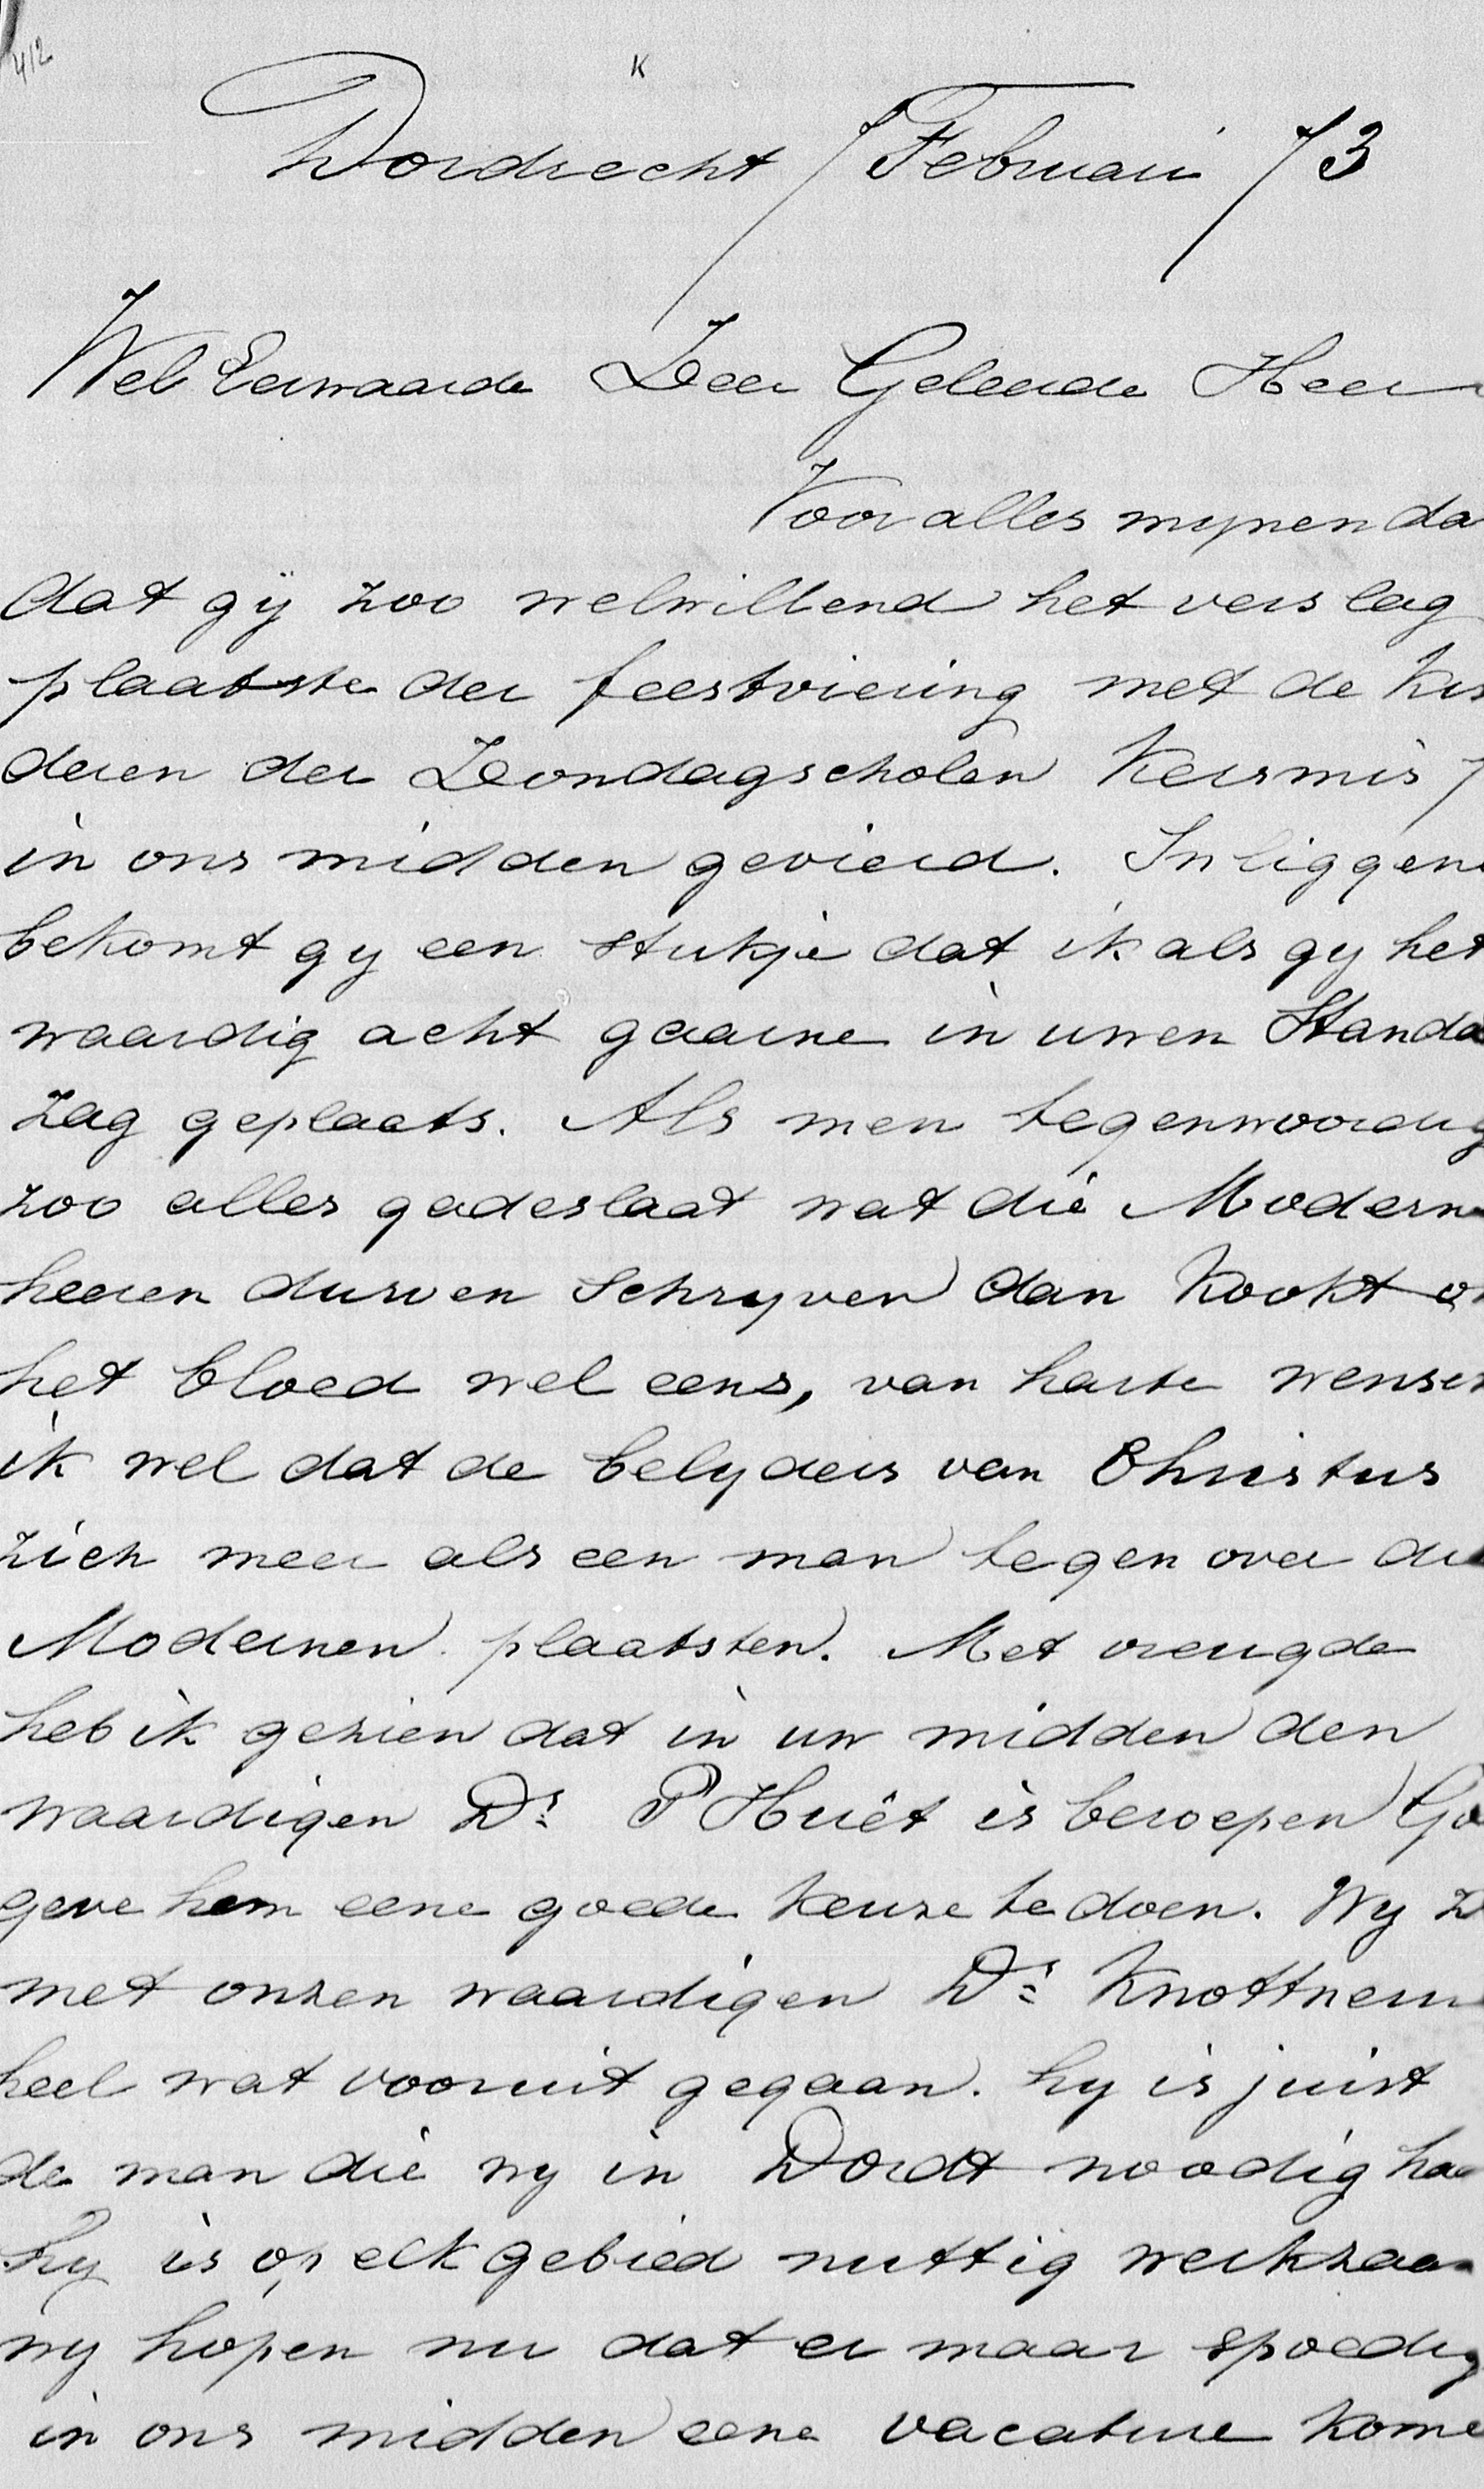 412
K
Dordrecht 7 Februari 73
Wel Eerwaarde Zeer Geleerde Heer
Voor alles mynen da
dat gij zoo welwillend het verslag
plaatste der feestviering met de kin
deren der Zondagscholen Kersmis 7
in ons midden gevierd. Inliggend
bekomt gy een stukje dat ik als gy het
waardig acht gaarne in uwen Standa
zag geplaats. Als men tegenwoordig
zoo alles gadeslaat wat die Moderne
heeren durven schryven dan kookt on
het bloed wel eens, van harte wensch
ik wel dat de belyders van Christus
zich meer als een man tegen over die
Modernen plaatsten. Met vreugde
heb ik gezien dat in uw midden den
waardigen Ds P Huët is beroepen Go
geve hem eene goede keuze te doen. Wy z
met onzen waardigen Ds Knottneru
heel wat vooruit gegaan. hy is juist
de man die wy in Dordt noodig ha
hy is op elk gebied nuttig werkzaam
wy hopen nu dat er maar spoedig
in ons midden eene vacature kome